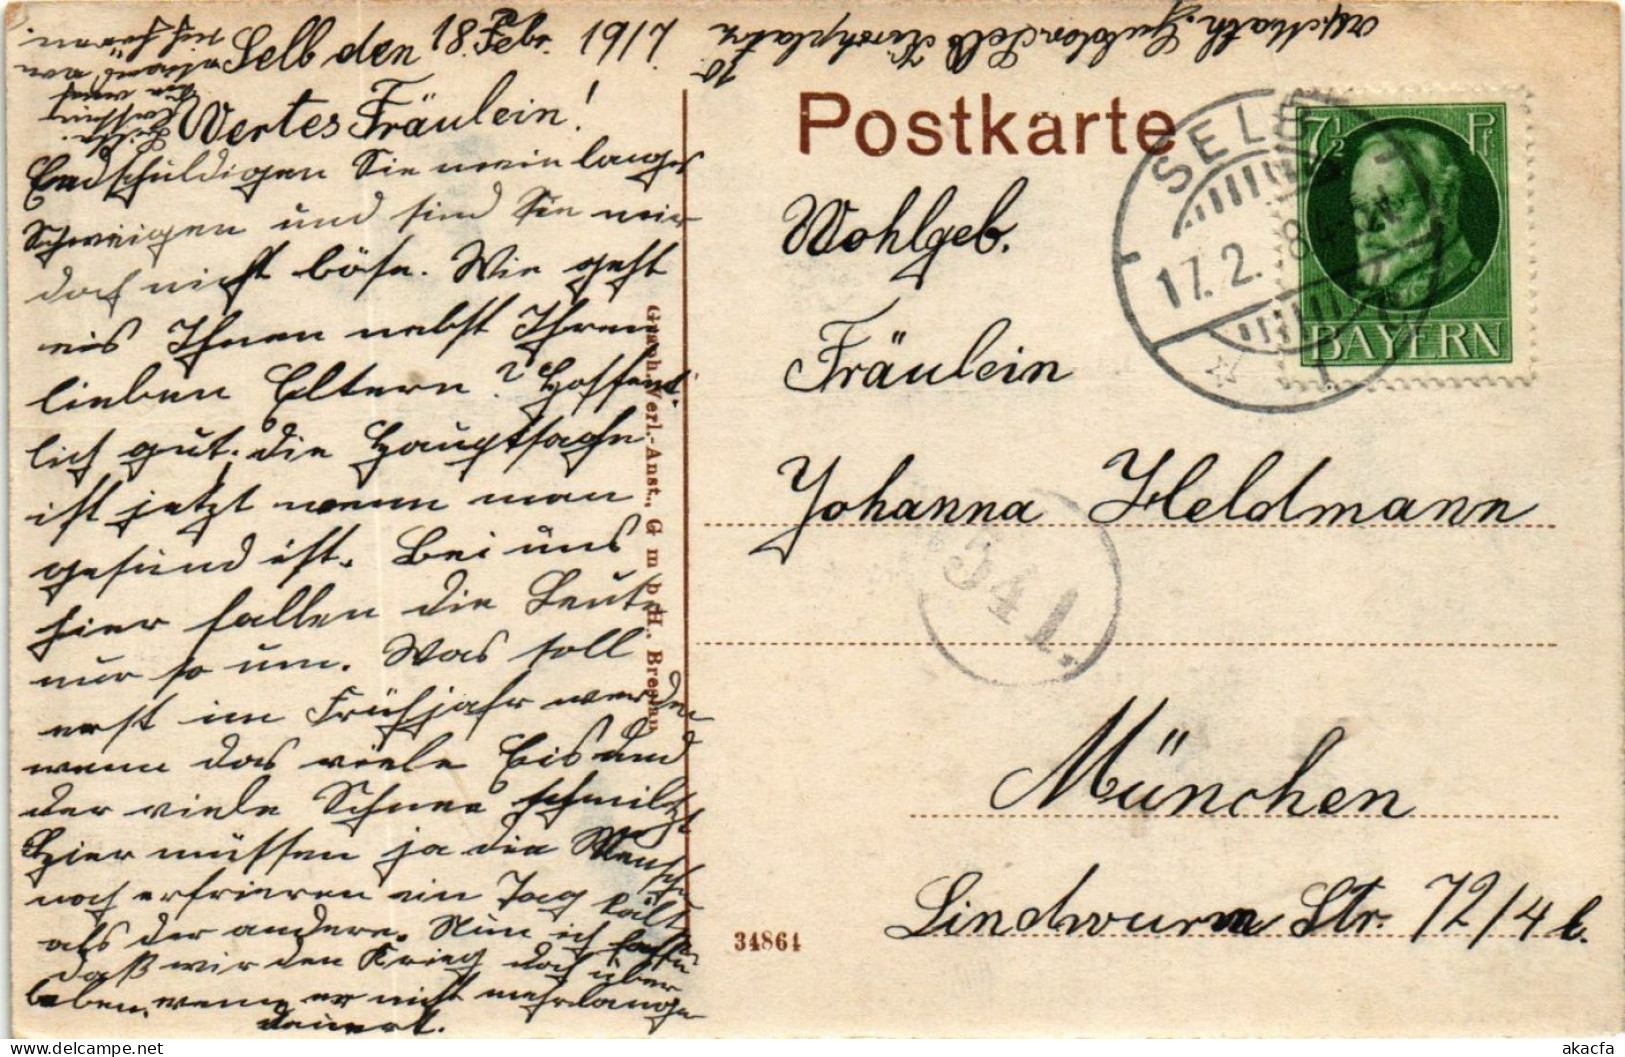 Selb den 18. Febr. 1917.
Wertes Fräulein!
Endschuldigen Sie mein langes
Schweigen und sind Sie mir
doch nicht böse. Wie geht
eis Ihnen nebst Ihren
lieben Eltern? Hoffend-
lich gut. Die Hauptsache
ist jetzt wenn man
gesund ist. Bei uns
hier fallen die Leute
nur so um. Was soll
erst im Frühjahr werden
wenn das viele Eis und
der viele Schnee schmilzt
Hier müssen ja die Mensch
noch erfrieren ein Tag kält
als der andere. Nun ich hoffe
daß wir den Krieg doch über
leben, wenn er nicht mehr lange
dauert.
Graph. Verl.-Anst., G m b H., Breslau
Postkarte
SELB
17. 2. 8
7½ Pf
BAYERN
Wohlgeb.
Fräulein
Johanna Heldmann
541.
München
Lindwurm Str. 72/4 l.
34864
akacfa